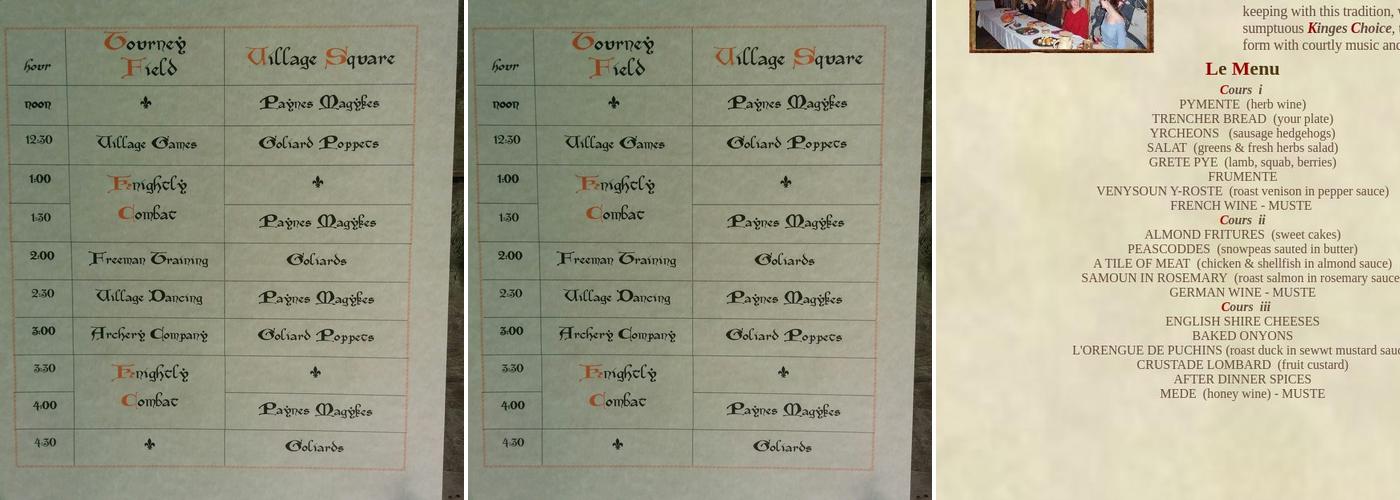 hour Tourney Field Village Square
noon Paynes Magykes
12:30 Village Games Goliard Poppets
1:00 Knightly Combat
1:30 Paynes Magykes
2:00 Freeman Training Goliards
2:30 Village Dancing Paynes Magykes
3:00 Archery Company Goliard Poppets
3:30 Knightly Combat
4:00 Paynes Magykes
4:30 Goliards
hour Tourney Field Village Square
noon Paynes Magykes
12:30 Village Games Goliard Poppets
1:00 Knightly Combat
1:30 Paynes Magykes
2:00 Freeman Training Goliards
2:30 Village Dancing Paynes Magykes
3:00 Archery Company Goliard Poppets
3:30 Knightly Combat
4:00 Paynes Magykes
4:30 Goliards
keeping with this tradition,
sumptuous Kinges Choice,
form with courtly music
Le Menu
Cours i
PYMENTE (herb wine)
TRENCHER BREAD (your plate)
YRCHEONS (sausage hedgehogs)
SALAT (greens & fresh herbs salad)
GRETE PYE (lamb, squab, berries)
FRUMENTE
VENYSOUN Y-ROSTE (roast venison in pepper sauce)
FRENCH WINE - MUSTE
Cours ii
ALMOND FRITURES (sweet cakes)
PEASCODDES (snowpeas sauted in butter)
A TILE OF MEAT (chicken & shellfish in almond sauce)
SAMOUN IN ROSEMARY (roast salmon in rosemary sauce
GERMAN WINE - MUSTE
Cours iii
ENGLISH SHIRE CHEESES
BAKED ONYONS
L'ORENGUE DE PUCHINS (roast duck in sewwt mustard
CRUSTADE LOMBARD (fruit custard)
AFTER DINNER SPICES
MEDE (honey wine) - MUSTE